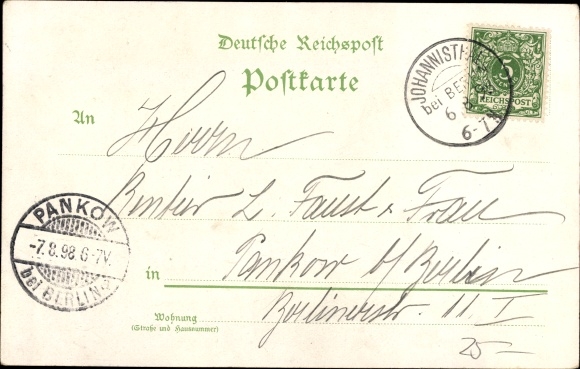 Deutsche Reichspost
Postkarte
5
REICHSPOST
JOHANNISTHAL
bei BERLIN
6 8
6-7
An
Herrn
Rentier L. Faust & Frau
in Pankow b/Berlin
Wohnung Berlinerstr. 11 I
(Straße und Hausnummer)
PANKOW
-7.8.98.6-7V.
bei BERLIN
25-